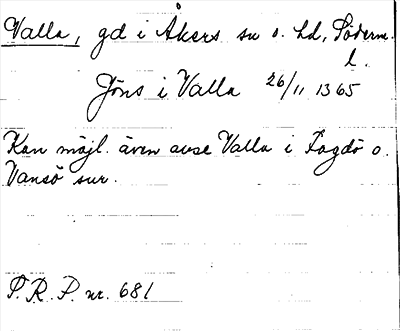 Valla, gd i Åkers sn o. hd, Söderm.
l.
Jöns i Valla 26/11 1365
Kan möjl. även avse Valla i Fogdö o.
Vansö snr.
P.R.P. nr. 681